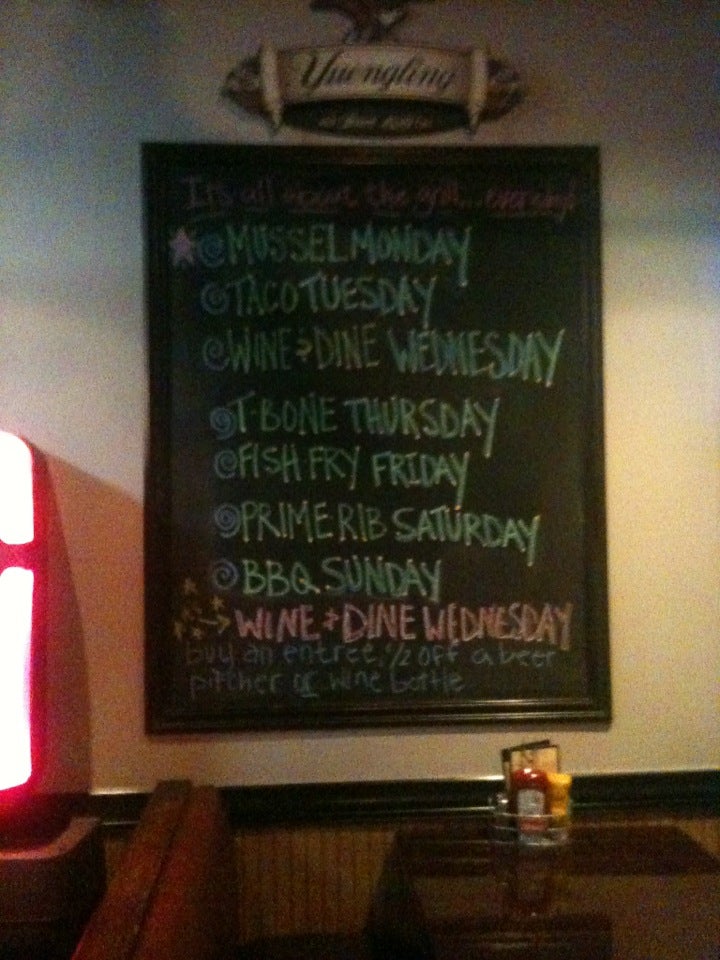 Yuengling
It's all about the grill... everyday!
MUSSEL MONDAY
TACO TUESDAY
WINE & DINE WEDNESDAY
T-BONE THURSDAY
FISH FRY FRIDAY
PRIME RIB SATURDAY
BBQ SUNDAY
WINE & DINE WEDNESDAY
buy an entree, 1/2 off a beer
pitcher or wine bottle